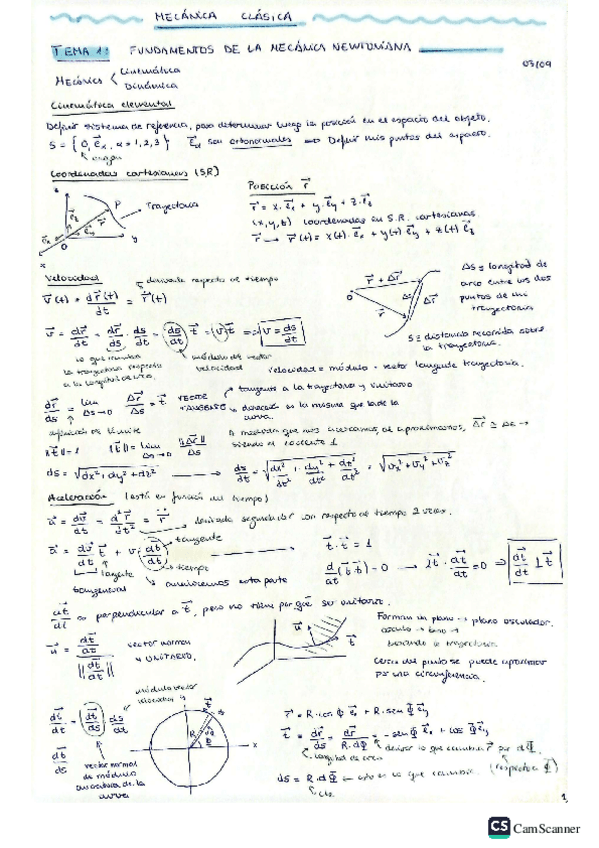 MECÁNICA CLÁSICA
TEMA 1: FUNDAMENTOS DE LA MECÁNICA NEWTONIANA
03/09
Mecánica < Cinemática
Dinámica
Cinemática elemental
Definir sistema de referencia, para determinar luego la posición en el espacio del objeto.
S = { O, e⃗α, α = 1,2,3 } e⃗α son ortonormales ⇒ Definir mis puntos del espacio.
origen
Coordenadas cartesianas (S.R)
z
P
Trayectoria
r⃗
O
y
x
Posición r⃗
r⃗ = x·e⃗x + y·e⃗y + z·e⃗z
coordenadas en S.R. cartesianas
r⃗ → r⃗(t) = x(t)·e⃗x + y(t)·e⃗y + z(t)·e⃗z
Velocidad
derivada respecto al tiempo
v⃗(t) = dr⃗(t)/dt = r⃗̇(t)
r⃗ + Δr⃗
Δr⃗
O
r⃗
Δs ≡ longitud de
arco entre los dos
puntos de la
trayectoria
v⃗ = dr⃗/dt = dr⃗/ds · ds/dt = ds/dt t⃗ = v t⃗ ⇒ v = ds/dt
S ≡ distancia recorrida sobre
la trayectoria.
la trayectoria respecto
a la longitud de arco.
módulo del vector
velocidad
velocidad = módulo · vector tangente trayectoria.
dr⃗/ds = lim Δs→0 Δr⃗/Δs = t⃗ VECTOR
TANGENTE
tangente a la trayectoria y unitario
dirección es la misma que la de la
curva.
definición de límite
||t⃗|| = 1 ||t⃗|| = lim Δs→0 ||Δr⃗||/Δs
A medida que nos acercamos
siendo el cociente 1
ds = √(dx² + dy² + dz²) → ds/dt = √(dx²/dt² + dy²/dt² + dz²/dt²) = √(vx² + vy² + vz²)
Aceleración (está en función del tiempo)
a⃗ = dv⃗/dt = d²r⃗/dt² = r⃗̈ → derivada segunda con respecto al tiempo 2 veces.
a⃗ = dv/dt t⃗ + v (dt⃗/dt)
tangente
tiempo
tangente
tangencial
analicemos esta parte
t⃗ · t⃗ = 1
d/dt (t⃗·t⃗) = 0 → 2t⃗ · dt⃗/dt = 0 ⇒ dt⃗/dt ⊥ t⃗
dt⃗/dt es perpendicular a t⃗, pero no tiene por qué ser unitario.
n⃗ = dt⃗/dt / ||dt⃗/dt||
vector normal
y UNITARIO.
n⃗
t⃗
Forman un plano → plano osculador.
osculo → beso →
besando la trayectoria
Cerca del punto se puede aproximar
por una circunferencia.
dt⃗/dt = (dt⃗/ds) ds/dt
módulo vector
velocidad
dt⃗/ds
vector normal
de módulo
curvatura de la
curva
R
x
r⃗ = R·cos Φ e⃗x + R·sen Φ e⃗y
t⃗ = dr⃗/ds = dr⃗/(R·dΦ) = -sen Φ e⃗x + cos Φ e⃗y
longitud de arco
(respecto a Φ)
ds = R·dΦ
cte.
1
CS CamScanner